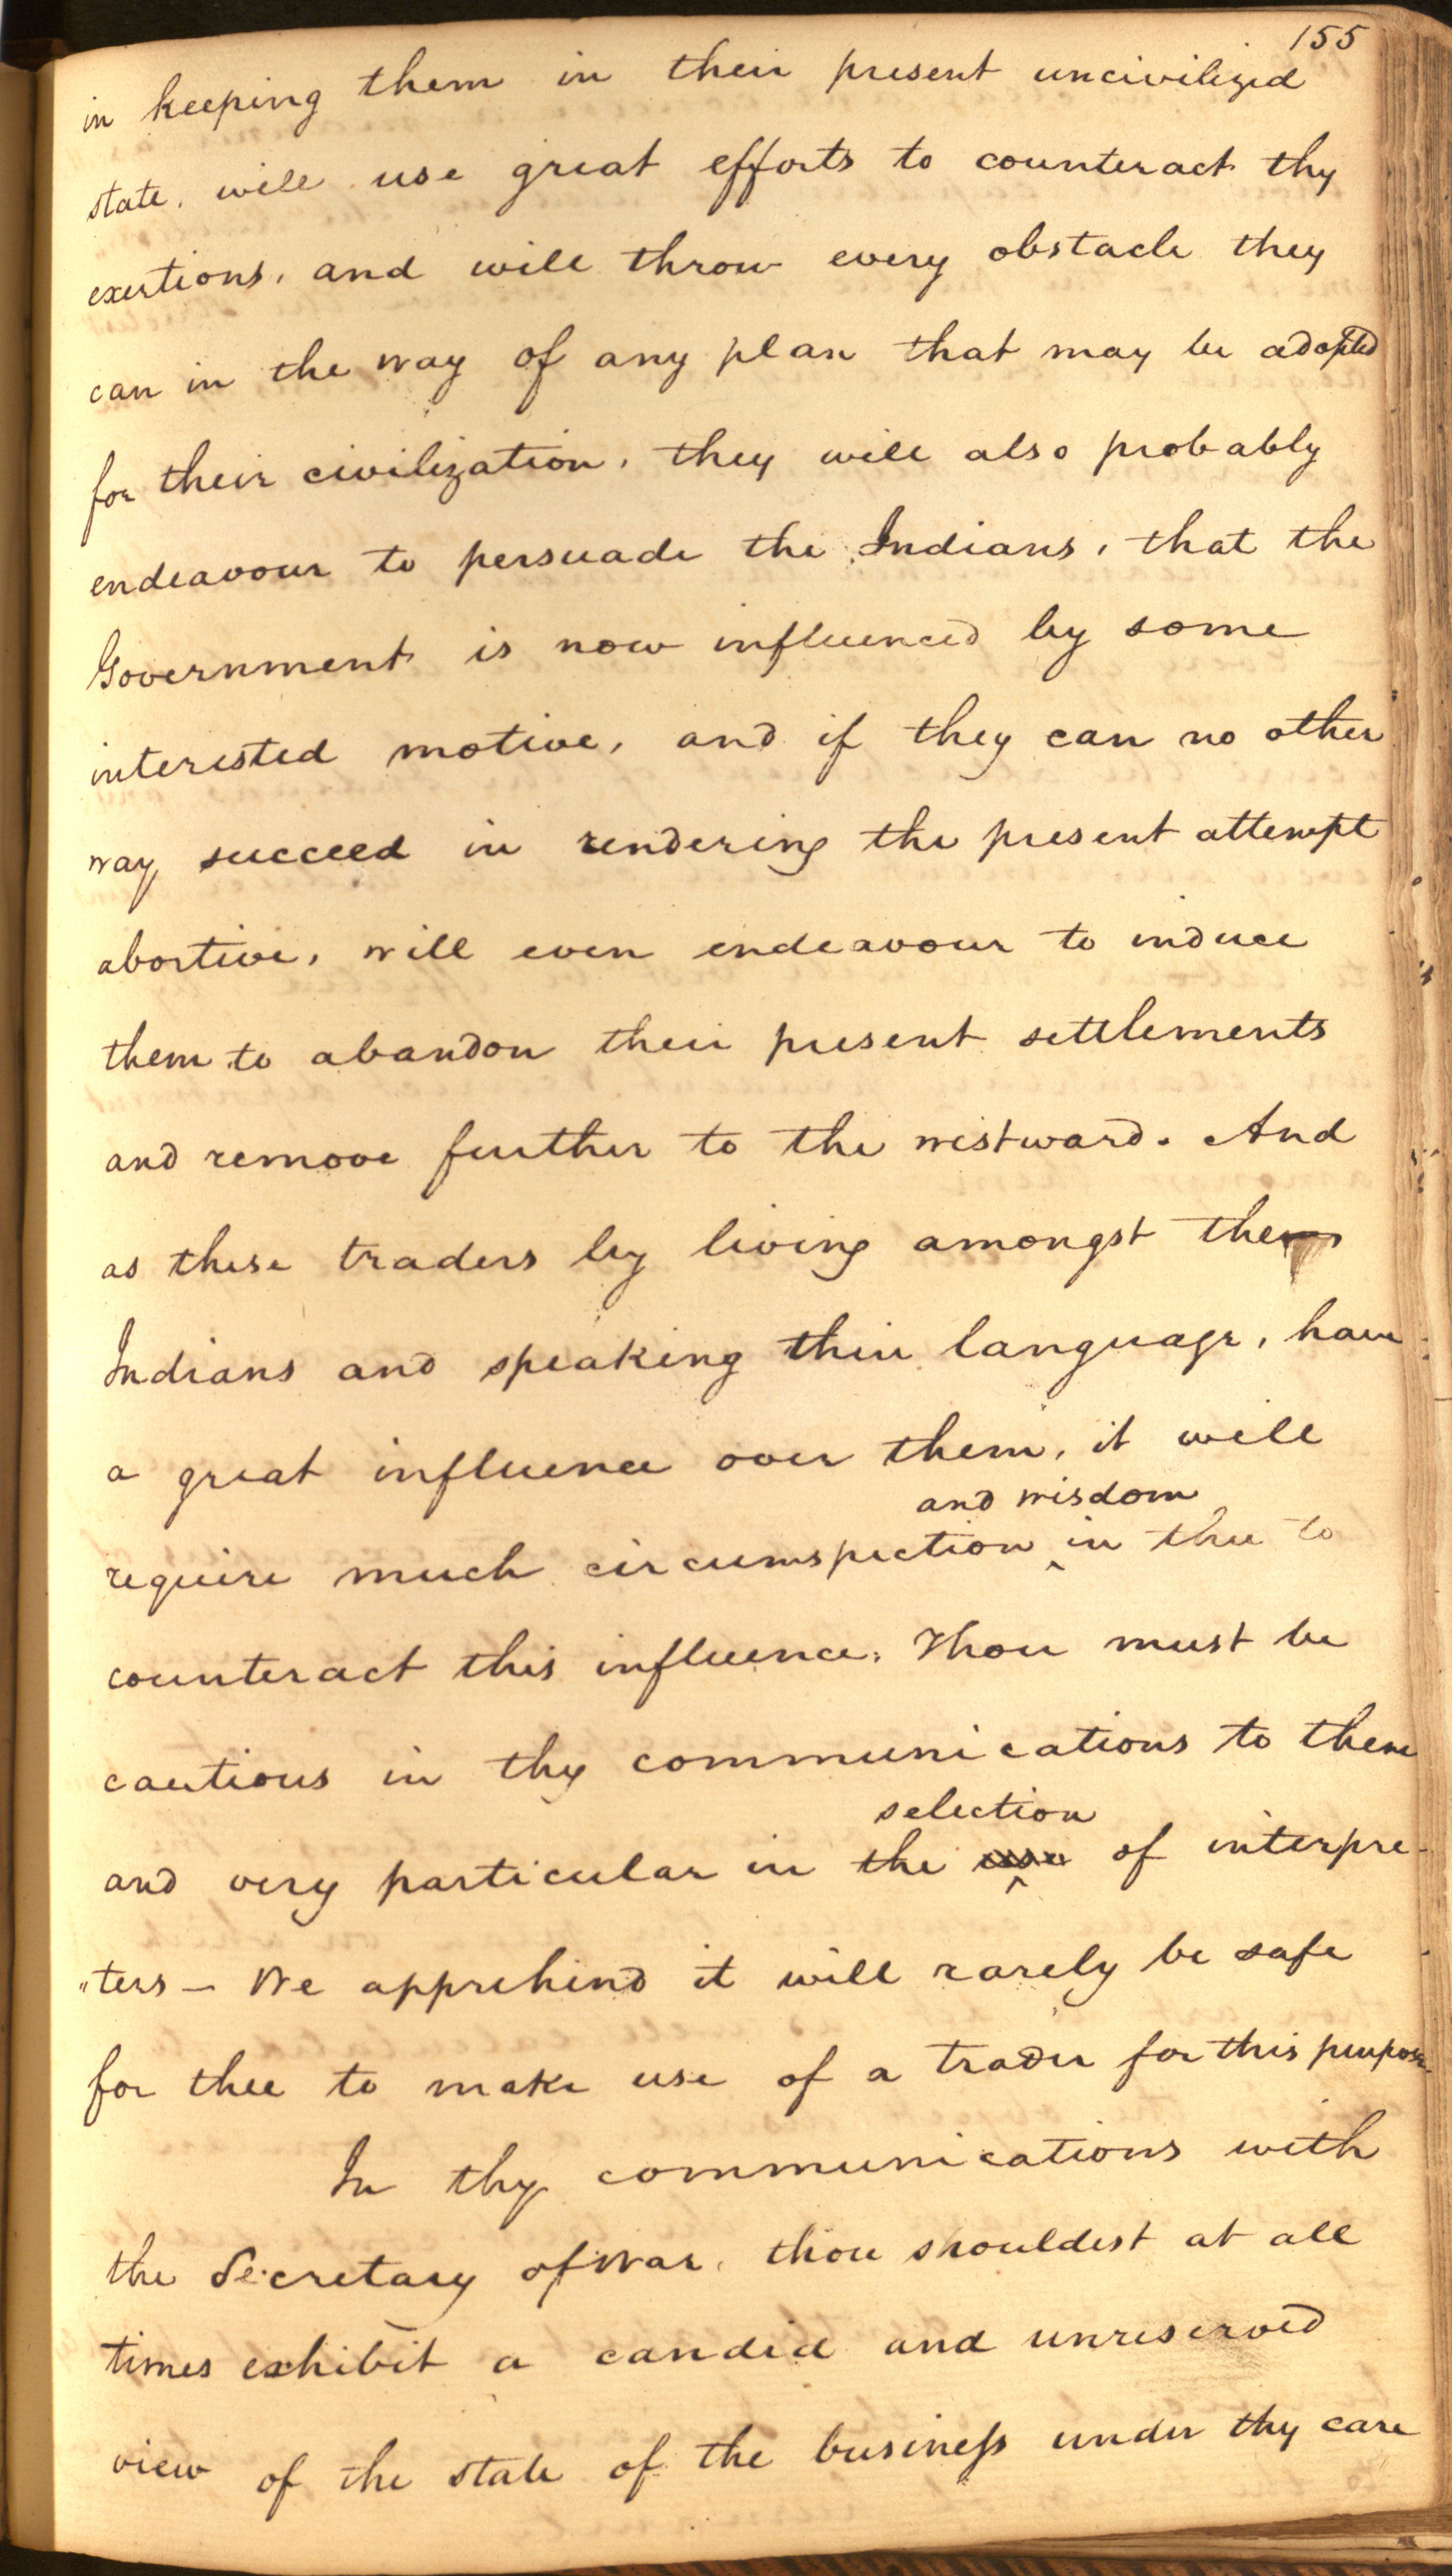 155
in keeping them in their present uncivilized
state, will use great efforts to counteract thy
exertions, and will throw every obstacle they
can in the way of any plan that may be adopted
for their civilization, they will also probably
endeavour to persuade the Indians, that the
Government is now influenced by some
interested motive, and if they can no other
way succeed in rendering the present attempt
abortive, will even endeavour to induce
them to abandon their present settlements
and remove further to the westward. And
as these traders by living amongst the
Indians and speaking their language, have
a great influence over them, it will
and wisdom
require much circumspection ‸ in thee to
counteract this influence. Thou must be
cautious in thy communications to them
selection
and very particular in the use ‸ of interpre-
"ters – We apprehend it will rarely be safe
for thee to make use of a trader for this purpose.
In thy communications with
the Secretary of War, thou shouldest at all
times exhibit a candid and unreserved
view of the state of the business under thy care